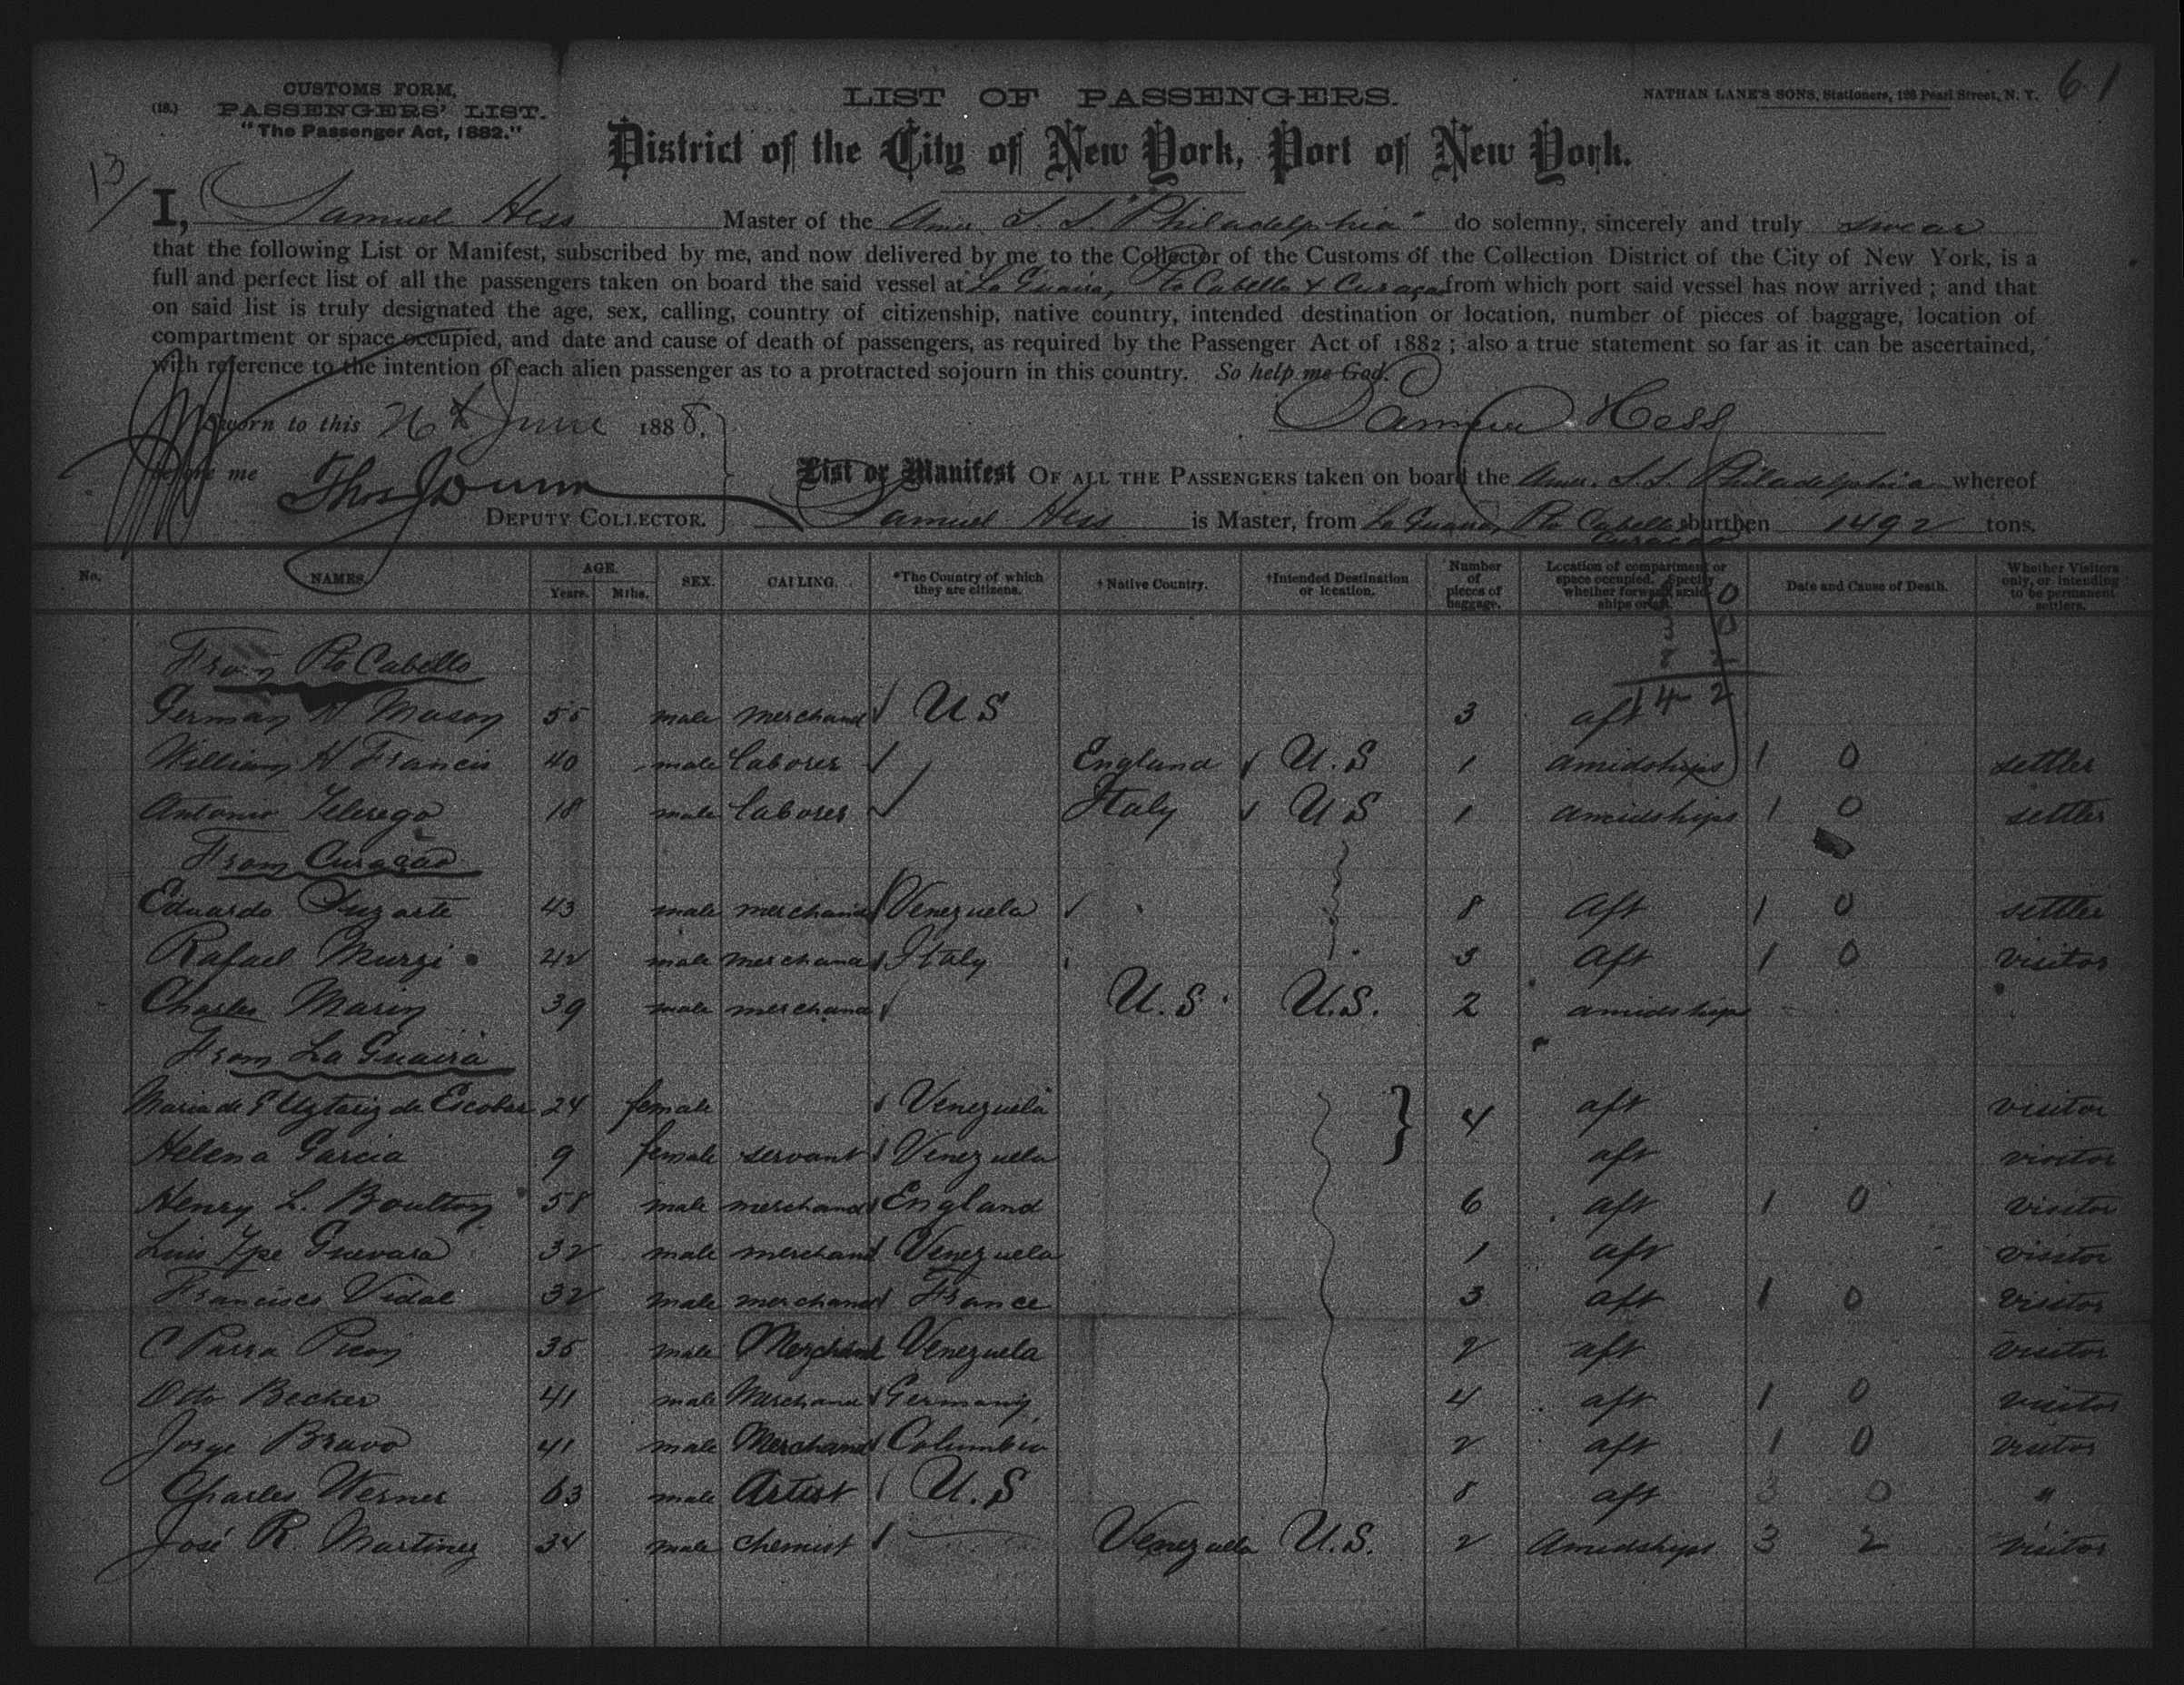 61
CUSTOMS FORM,
(18.) PASSENGERS' LIST.
"The Passenger Act, 1882."
LIST OF PASSENGERS.
NATHAN LANE'S SONS, Stationers, 126 Pearl Street, N. Y.
District of the City of New York, Port of New York.
13/
I, Samuel Hess Master of the Amer. S. S. "Philadelphia" do solemny, sincerely and truly swear
that the following List or Manifest, subscribed by me, and now delivered by me to the Collector of the Customs of the Collection District of the City of New York, is a
full and perfect list of all the passengers taken on board the said vessel at La Guaira, Pto Cabello & Curaçao from which port said vessel has now arrived; and that
on said list is truly designated the age, sex, calling, country of citizenship, native country, intended destination or location, number of pieces of baggage, location of
compartment or space occupied, and date and cause of death of passengers, as required by the Passenger Act of 1882; also a true statement so far as it can be ascertained,
with reference to the intention of each alien passenger as to a protracted sojourn in this country. So help me God.
Sworn to this 26th June 1888.
Samuel Hess
before me Thos J Dunn
DEPUTY COLLECTOR.
List or Manifest OF ALL THE PASSENGERS taken on board the Amer. S.S. Philadelphia whereof
Samuel Hess is Master, from La Guaira, Pto Cabello & Curacao burthen 1492 tons.
No. NAMES. AGE. Years. Mths. SEX. CALLING. *The Country of which they are citizens. †Native Country. †Intended Destination or location. Number of pieces of baggage. Location of compartment or space occupied. Specify whether forward, amidships or aft. Date and Cause of Death. Whether Visitors only, or intending to be permanent settlers.
From Pto Cabello
German H Mason 55 male merchand U S 3 aft
14 2
William H Francis 40 male laborer England U.S 1 amidships 1 0 settler
Antonio 18 male laborer Italy U S 1 amidships 1 0 settler
From Curaçao
Eduardo Duzarte 43 male merchand Venezuela 8 aft 1 0 settler
Rafael Murzi 42 male merchand Italy 3 aft 1 0 visitor
Charles Marin 39 male merchand U.S. U.S. 2 amidships
From La Guaira
Maria de P Uztariz de Escobar 24 female Venezuela 4 aft visitor
Helena Garcia 9 female servant Venezuela aft visitor
Henry L. Boulton 58 male merchand England 6 aft 1 0 visitor
Luis Ype Guevara 32 male merchand Venezuela 1 aft visitor
Francisco Vidal 32 male merchand France 3 aft 1 0 visitor
C Parra Picon 35 male Merchand Venezuela 2 aft visitor
Otto Becker 41 male Merchand Germany 4 aft 1 0 visitor
Jorge Bravo 41 male Merchand Columbia 2 aft 1 0 visitor
Charles Werner 63 male Artist U.S 8 aft 3 0 "
José R. Martinez 34 male chemist Venezuela U.S. 2 Amidships 3 2 visitor